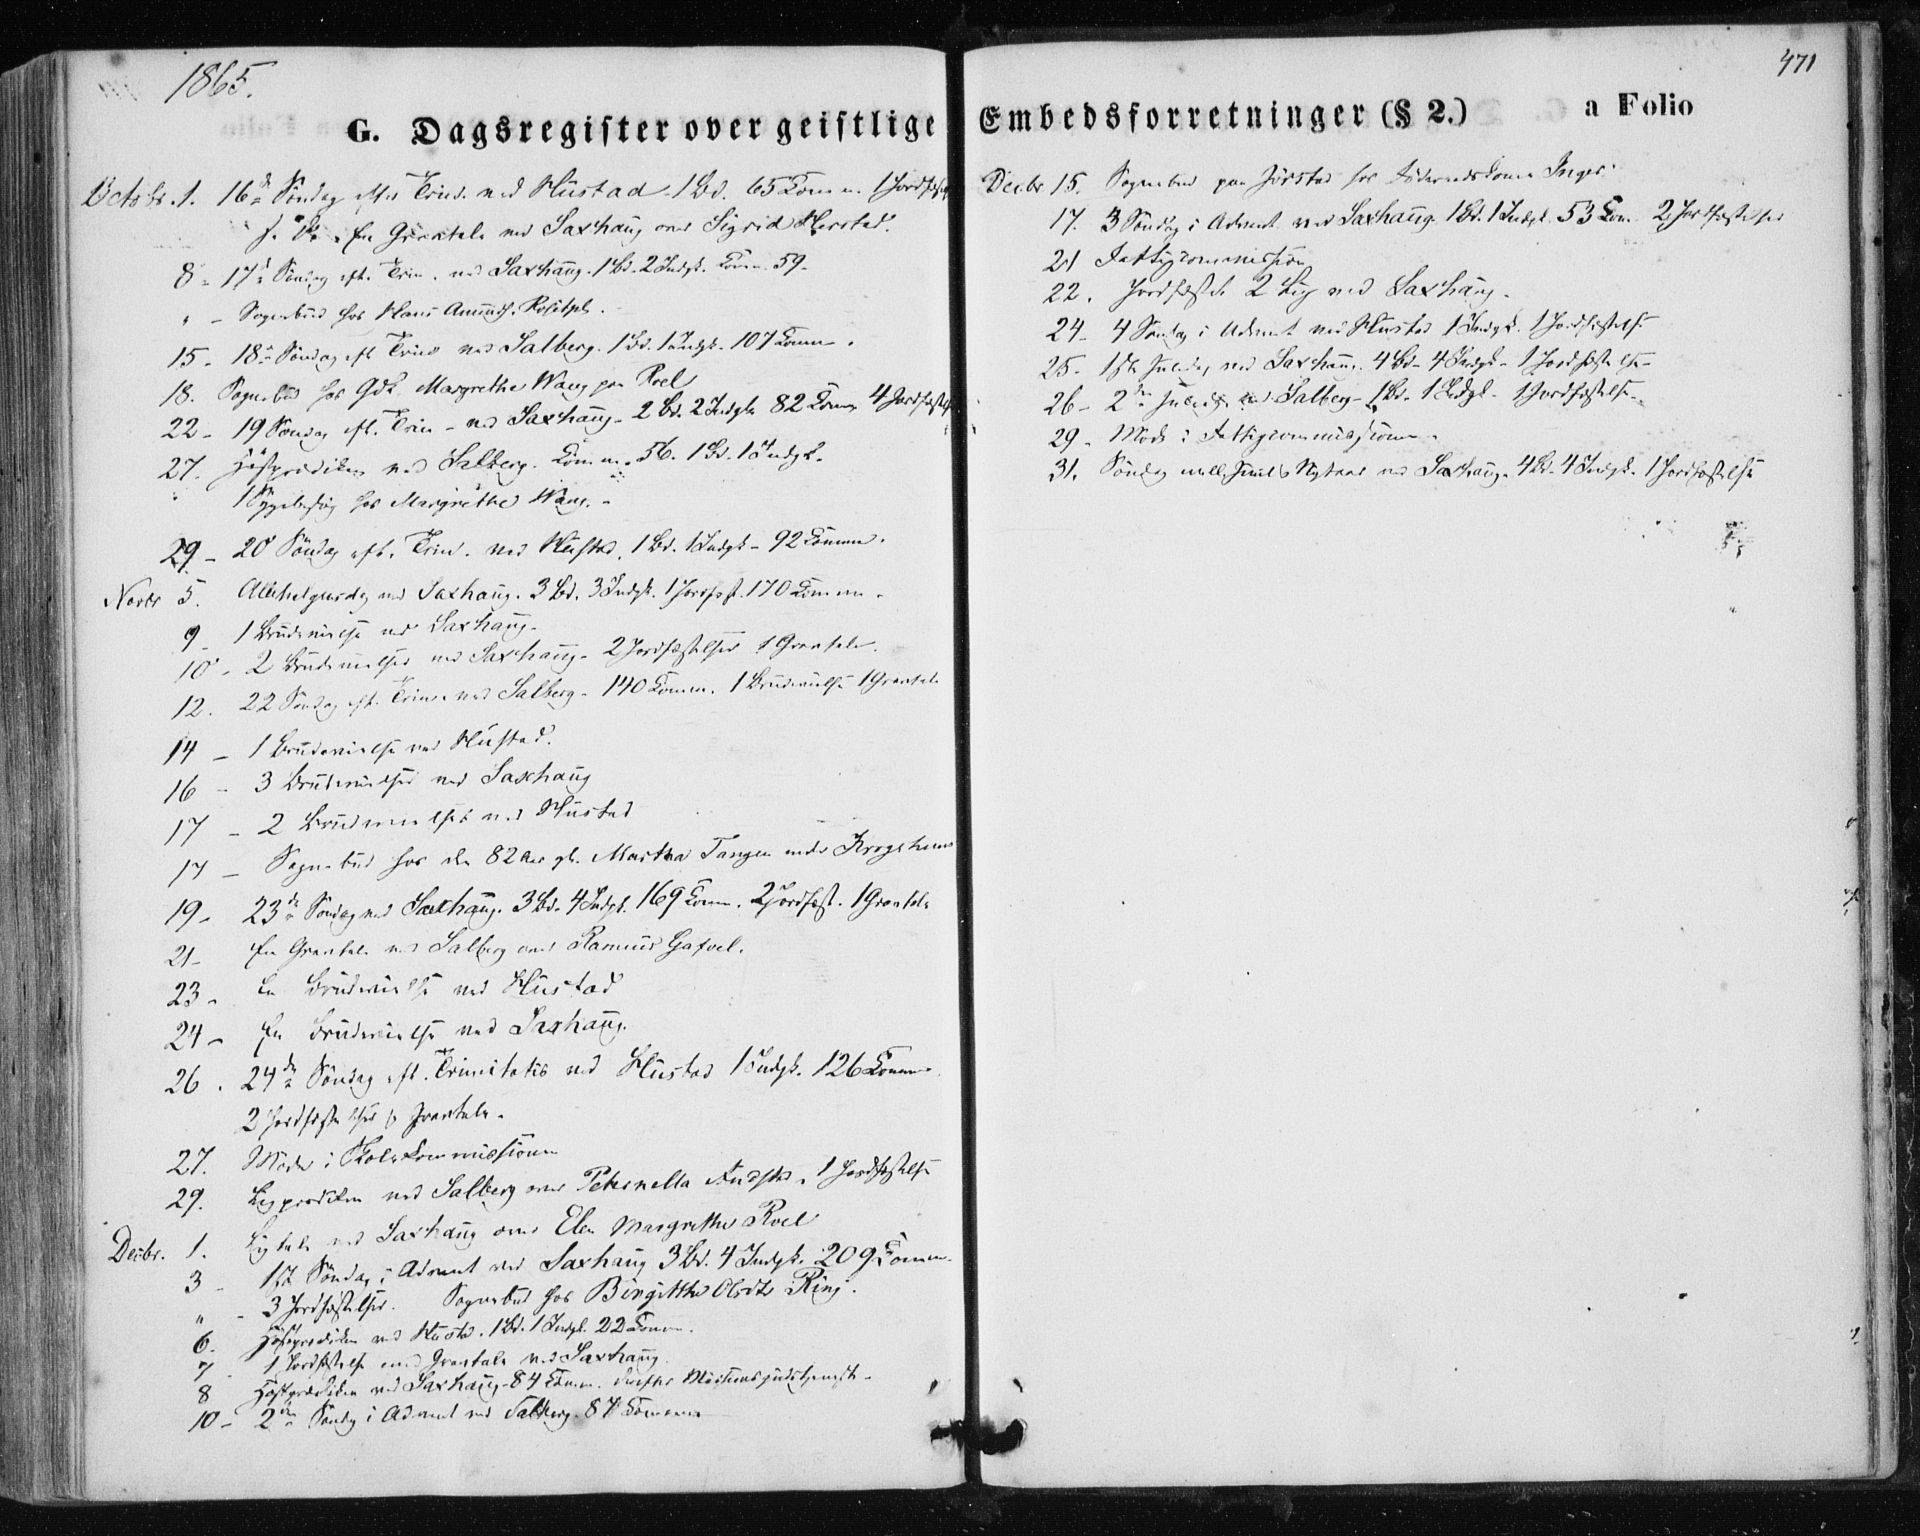 1865.
471
G. Dagsregister over geistlige Embedsforretninger (§ 2.) a Folio
Octobr. 1. 16de Söndag efter Trin. ved Hustad. 1 Bd. 65 Comm. 1 Jordfæst
En Gravtale ved Saxhaug over Sigrid
8 - 17de Söndag eft. Trin. ved Saxhaug. 1 Bd. 2 Indgk. Comm. 59.
" - Sognebud hos Hans
15 - 18de Söndag eft Trin ved Salberg. 1 Bd. 1 Indgk. 107 Comm.
18. Sognebud hos Margrethe Wang paa Roel
22 - 19 Söndag eft. Trin - ved Saxhaug - 2 Bd. 2 Indgk. 82 Comm. 4 Jordfæstels
27. Höstprædiken ved Salberg. Comm. 56. 1 Bd. 1 Indgk.
" 1 Sygebesög hos Margrethe Wang. -
29 - 20 Söndag eft. Trin. ved Hustad. 1 Bd. 1 Indgk - 92 Comm.
Novbr 5. Allehelgensdag ved Saxhaug. 3 Bd. 3 Indgk. 1 Jordfæst. 170 Comm.
9 - 1 Brudevielse ved Saxhaug.
10 - 2 Brudevielser ved Saxhaug - 2 Jordfæstelser 1 Gravtale.
12. 22 Söndag eft. Trin. ved Salberg - 140 Comm. 1 Brudevielse 1 Gravtale
14 - 1 Brudevielse ved Hustad.
16 - 3 Brudevielser ved Saxhaug
17 - 2 Brudevielser ved Hustad
17 - Sognebud hos den 82 Aar gl. Martha Tangen under
19 - 23de Söndag ved Saxhaug. 3 Bd. 4 Indgk. 169 Comm. 2 Jordfæst. 1 Gravtale
21 - En Gravtale ved Salberg over Rasmus
23 - En Brudevielse ved Hustad
24 - En Brudevielse ved Saxhaug.
26. 24de Söndag eft. Trinitatis ved Hustad 1 Indgk. 126 Comm.
2 Jordfæstelser Gravtale.
27. Möde i Skolekommissionen
29. Ligprædiken ved Salberg over Peternella 1 Jordfæstelse
Decbr. 1. Ligtale ved Saxhaug over Elen Margrethe Roel
3 - 1st Söndag i Advent ved Saxhaug 3 Bd. 4 Indgk. 209 Comm.
" - 3 Jordfæstelser. Sognebud hos Birgitthe Olsdtr Ring.
6. Höstprædiken ved Hustad. 1 Bd. 1 Indgk. 22 Comm.
7 - 1 Jordfæstelse med Gravtale ved Saxhaug
8 Höstprædiken ved Saxhaug - 84 Comm. derefter Missionsgudstjeneste -
10 - 2den Söndag i Advent ved Salberg. 87 Comm
Decbr 15. Sognebud paa Jörstad hos Inger
17. 3 Söndag i Advent ved Saxhaug. 1 Bd. 1 Indgk. 53 Com. 2 Jordfæstelser
21 Fattigcommission
22. Jordfæstede 2 Lig ved Saxhaug.
24 - 4 Söndag i Advent ved Hustad 1 Indgk. 1 Jordfæstelse
25. 1ste Juledag ved Saxhaug. 4 Bd - 4 Indgk - 1 Jordfæstelse -
26 - 2den Juledag ved Salberg - 1 Bd. 1 Indgk - 1 Jordfæstelse.
29 - Möde i Fattigcommissionen.
31. Söndag mell. Juul & Nytaar ved Saxhaug. 4 Bd. 4 Indgk. 1 Jordfæstelse